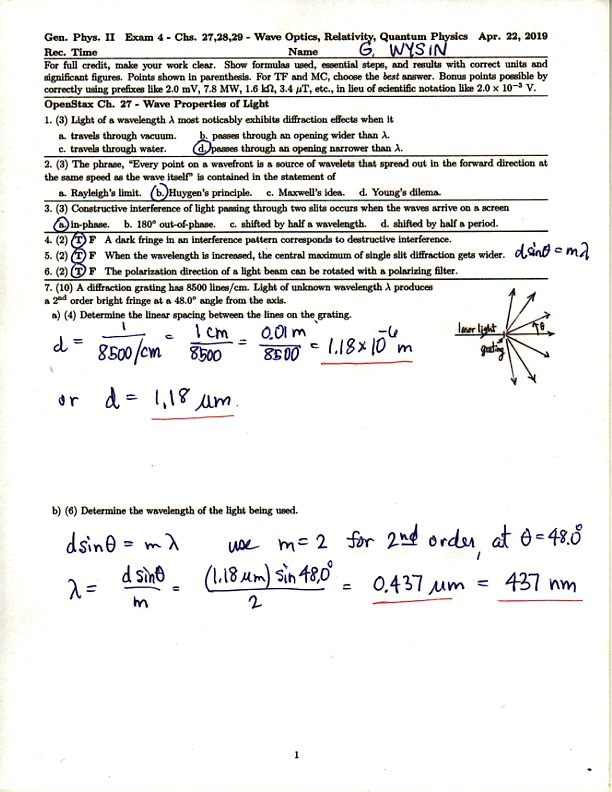 Gen. Phys. II Exam 4 - Chs. 27,28,29 - Wave Optics, Relativity, Quantum Physics Apr. 22, 2019
Rec. Time Name G. WYSIN
For full credit, make your work clear. Show formulas used, essential steps, and results with correct units and
significant figures. Points shown in parenthesis. For TF and MC, choose the best answer. Bonus points possible by
correctly using prefixes like 2.0 mV, 7.8 MW, 1.6 kΩ, 3.4 μT, etc., in lieu of scientific notation like 2.0 × 10⁻³ V.
OpenStax Ch. 27 - Wave Properties of Light
1. (3) Light of a wavelength λ most noticably exhibits diffraction effects when it
a. travels through vacuum. b. passes through an opening wider than λ.
c. travels through water. d. passes through an opening narrower than λ.
2. (3) The phrase, "Every point on a wavefront is a source of wavelets that spread out in the forward direction at
the same speed as the wave itself" is contained in the statement of
a. Rayleigh's limit. b. Huygen's principle. c. Maxwell's idea. d. Young's dilema.
3. (3) Constructive interference of light passing through two slits occurs when the waves arrive on a screen
a. in-phase. b. 180° out-of-phase. c. shifted by half a wavelength. d. shifted by half a period.
4. (2) T F A dark fringe in an interference pattern corresponds to destructive interference.
5. (2) T F When the wavelength is increased, the central maximum of single slit diffraction gets wider. d sinθ = mλ
6. (2) T F The polarization direction of a light beam can be rotated with a polarizing filter.
7. (10) A diffraction grating has 8500 lines/cm. Light of unknown wavelength λ produces
a 2nd order bright fringe at a 48.0° angle from the axis.
a) (4) Determine the linear spacing between the lines on the grating.
laser light
grating
θ
d = 1 / 8500/cm = 1 cm / 8500 = 0.01 m / 8500 = 1.18 × 10⁻⁶ m
or d = 1.18 μm.
b) (6) Determine the wavelength of the light being used.
d sinθ = m λ use m = 2 for 2nd order, at θ = 48.0°
λ = d sinθ / m = (1.18 μm) sin 48.0° / 2 = 0.437 μm = 437 nm
1